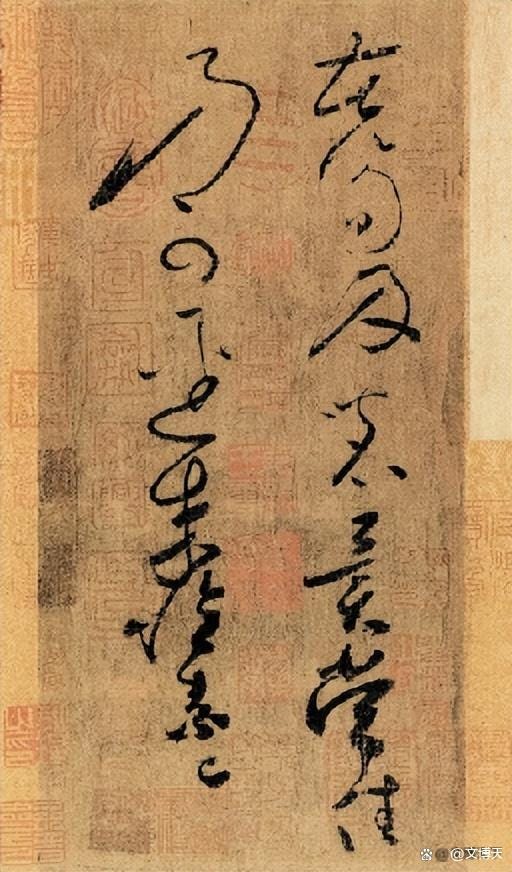 苦筍及茗異常佳
乃可逕來懷素上
@文博天